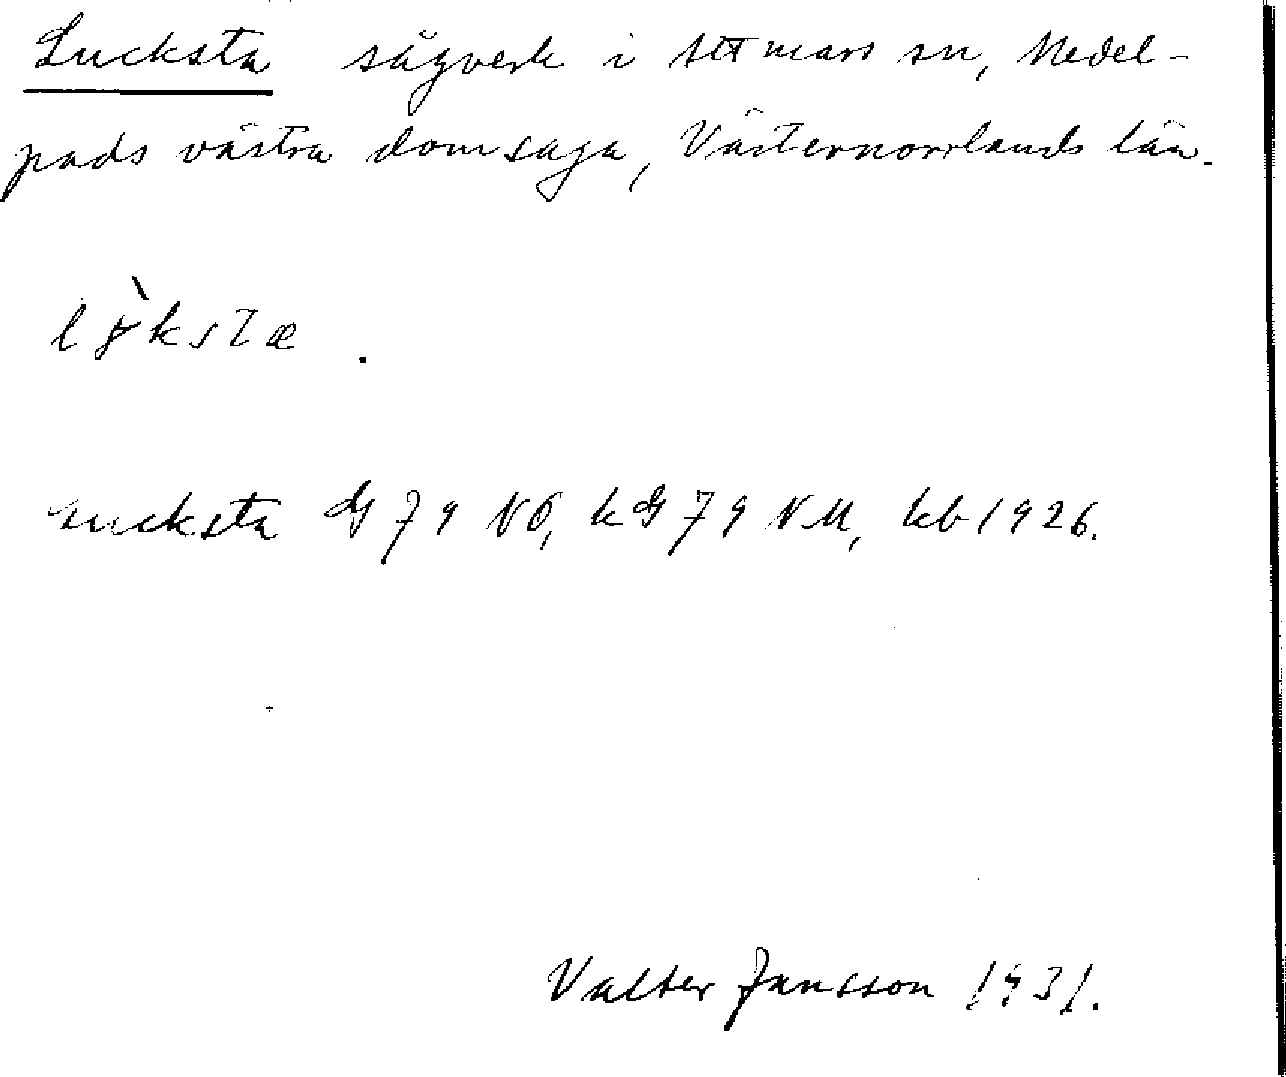 Lucksta sågverk i Attmars sn, Medel-
pads västra domsaga, Västernorrlands län.
Lucksta GJ 79 NÖ, kGJ 79 NM, kb 1926.
Valter Jansson 1931.